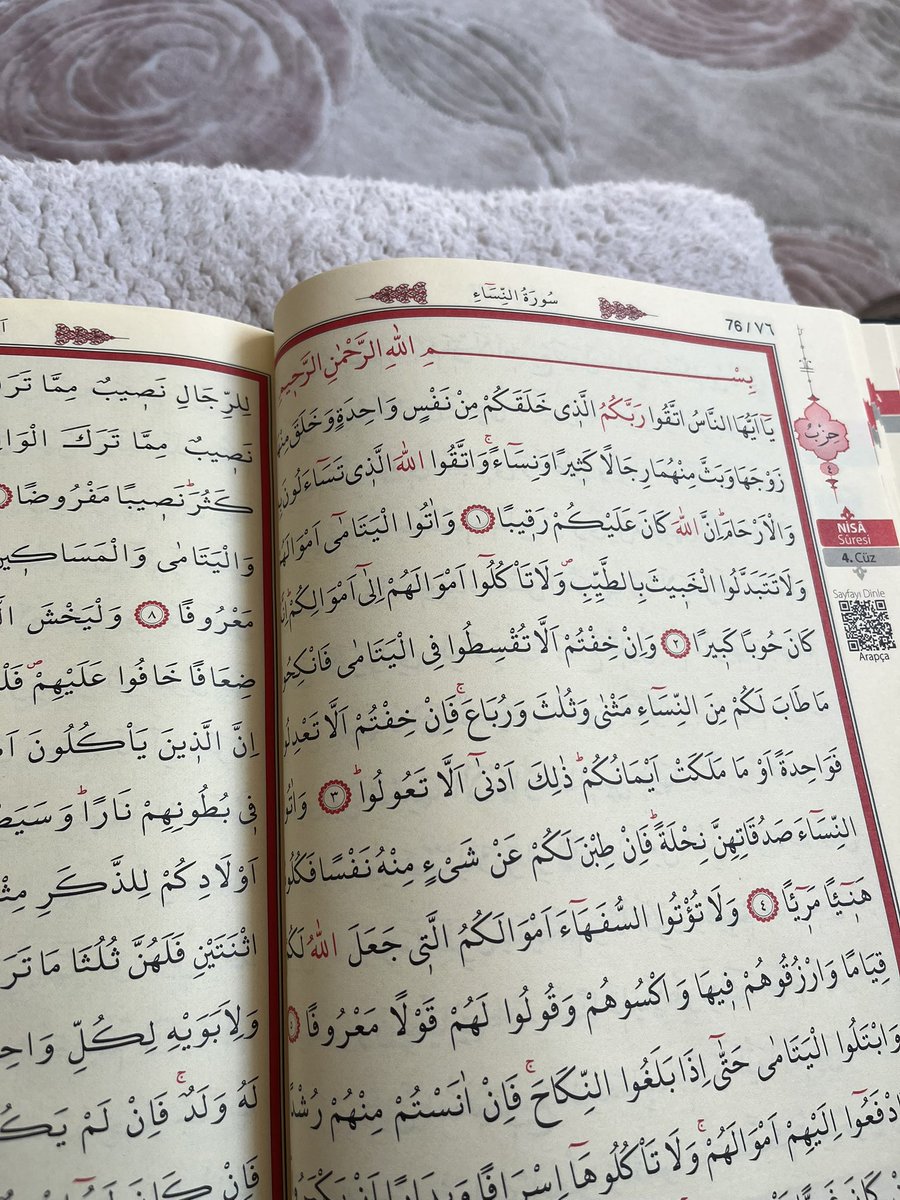 سُورَةُ النِّسَٓاءِ
76 / ٧٦
بِسْــــــمِ اللّٰهِ الرَّحْمٰنِ الرَّحٖيمِ
يَٓا اَيُّهَا النَّاسُ اتَّقُوا رَبَّكُمُ الَّذٖى خَلَقَكُمْ مِنْ نَفْسٍ وَاحِدَةٍ وَخَلَقَ
زَوْجَهَا وَبَثَّ مِنْهُمَا رِجَالًا كَثٖيرًا وَنِسَٓاءًۚ وَاتَّقُوا اللّٰهَ الَّذٖى تَسَٓاءَلُونَ
وَالْاَرْحَامَۜ اِنَّ اللّٰهَ كَانَ عَلَيْكُمْ رَقٖيبًا ١ وَاٰتُوا الْيَتَامٰٓى
وَلَا تَتَبَدَّلُوا الْخَبٖيثَ بِالطَّيِّبِۖ وَلَا تَأْكُلُٓوا اَمْوَالَهُمْ اِلٰٓى اَمْوَالِكُمْۜ
كَانَ حُوبًا كَبٖيرًا ٢ وَاِنْ خِفْتُمْ اَلَّا تُقْسِطُوا فِى الْيَتَامٰى
مَا طَابَ لَكُمْ مِنَ النِّسَٓاءِ مَثْنٰى وَثُلٰثَ وَرُبَاعَۚ فَاِنْ خِفْتُمْ اَلَّا
فَوَاحِدَةً اَوْ مَا مَلَكَتْ اَيْمَانُكُمْۜ ذٰلِكَ اَدْنٰٓى اَلَّا تَعُولُواۜ ٣
النِّسَٓاءَ صَدُقَاتِهِنَّ نِحْلَةًۜ فَاِنْ طِبْنَ لَكُمْ عَنْ شَیْءٍ مِنْهُ نَفْسًا
هَنٖٓيـًٔا مَرٖٓيـًٔا ٤ وَلَا تُؤْتُوا السُّفَهَٓاءَ اَمْوَالَكُمُ الَّتٖى جَعَلَ اللّٰهُ
قِيَامًا وَارْزُقُوهُمْ فٖيهَا وَاكْسُوهُمْ وَقُولُوا لَهُمْ قَوْلًا مَعْرُوفًا
وَابْتَلُوا الْيَتَامٰى حَتّٰٓى اِذَا بَلَغُوا النِّكَاحَۚ فَاِنْ اٰنَسْتُمْ مِنْهُمْ
اِلَيْهِمْ اَمْوَالَهُمْۚ وَلَا تَأْكُلُوهَٓا اِسْرَافًا
حِزْبٌ
٤
NİSÂ
Sûresi
4. Cüz
Sayfayı Dinle
Arapça
لِلرِّجَالِ نَصٖيبٌ مِمَّا
نَصٖيبٌ مِمَّا تَرَكَ
كَثُرَۜ نَصٖيبًا مَفْرُوضًا
وَالْيَتَامٰى
مَعْرُوفًا ٨ وَلْيَخْشَ
ضِعَافًا خَافُوا عَلَيْهِمْۖ
اِنَّ الَّذٖينَ يَأْكُلُونَ
فٖى بُطُونِهِمْ نَارًاۜ
اَوْلَادِكُمْ لِلذَّكَرِ
اثْنَتَيْنِ فَلَهُنَّ ثُلُثَا مَا
وَلِاَبَوَيْهِ لِكُلِّ
لَهُ وَلَدٌۚ فَاِنْ لَمْ